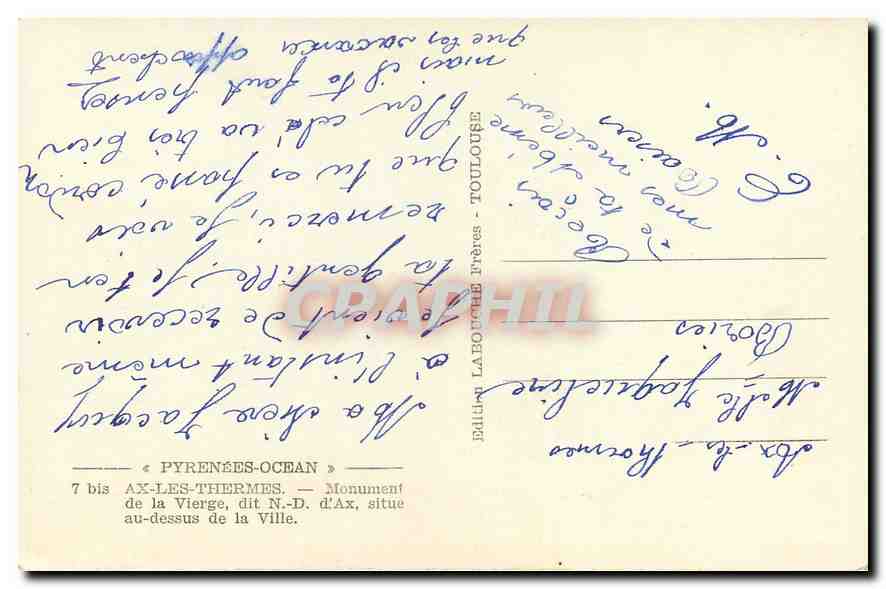 « PYRENÉES-OCEAN »
7 bis AX-LES-THERMES. — Monument
de la Vierge, dit N.-D. d'Ax, situe
au-dessus de la Ville.
Edition LABOUCHE Frères - TOULOUSE
CPAPHIL
Ma chère Jacquy
à l'instant même
je vient de recevoir
ta gentille, je t'en
remerci, je vois
que tu as passé
bien cela va très bien
mais il te faut penser
que les vacances approchent
Reçoi
de ta
mes meilleurs
Baisers
M.
Melle Jaqueline
Bories
Ax-les-Thermes